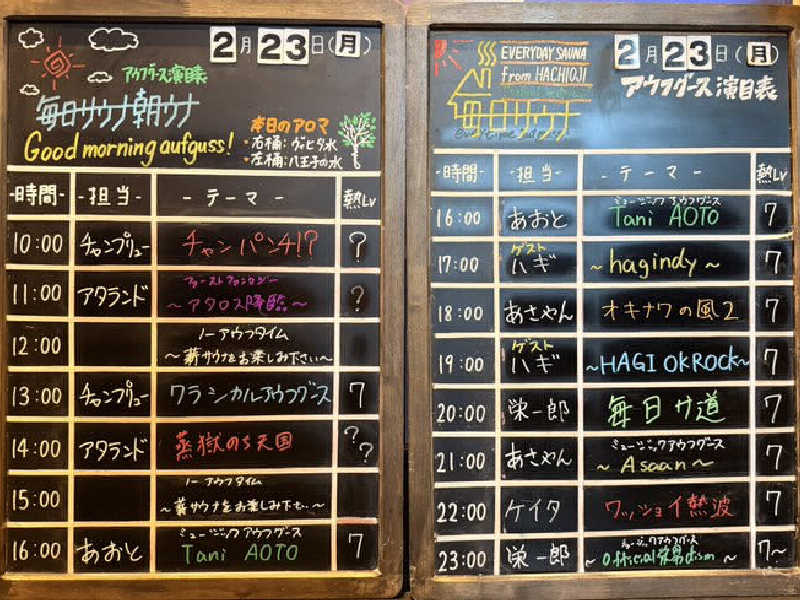 2月23日(月)
アウフグース演目表
毎日サウナ朝ウナ
Good morning aufguss!
本日のアロマ
・右桶:ヴィヒタ水
・左桶:八王子の水
-時間- -担当- -テーマ- 熱Lv
10:00 チャンプリュー チャンパンチ!? ?
11:00 アタランド ファーストファンタジー
~アタロス降臨~ ?
12:00 ノーアウフタイム
~薪サウナをお楽しみ下さい~
13:00 チャンプリュー クラシカルアウフグース 7
14:00 アタランド 蒸獄のち天国 ??
15:00 ノーアウフタイム
~薪サウナをお楽しみ下さ…~
16:00 あおと ミュージックアウフグース
Tani AOTO 7
2月23日(月)
EVERYDAY SAUNA
from HACHIOJI
毎日サウナ
アウフグース演目表
-時間- -担当- -テーマ- 熱Lv
16:00 あおと ミュージックアウフグース
Tani AOTO 7
17:00 ゲスト
ハギ ~hagindy~ 7
18:00 あさやん オキナワの風2 7
19:00 ゲスト
ハギ ~HAGI OKROCK~ 7
20:00 栄一郎 毎日サ道 7
21:00 あさやん ミュージックアウフグース
~Asaan~ 7
22:00 ケイタ ワッショイ熱波 7
23:00 栄一郎 ミュージックアウフグース
~Official dism~ 7~